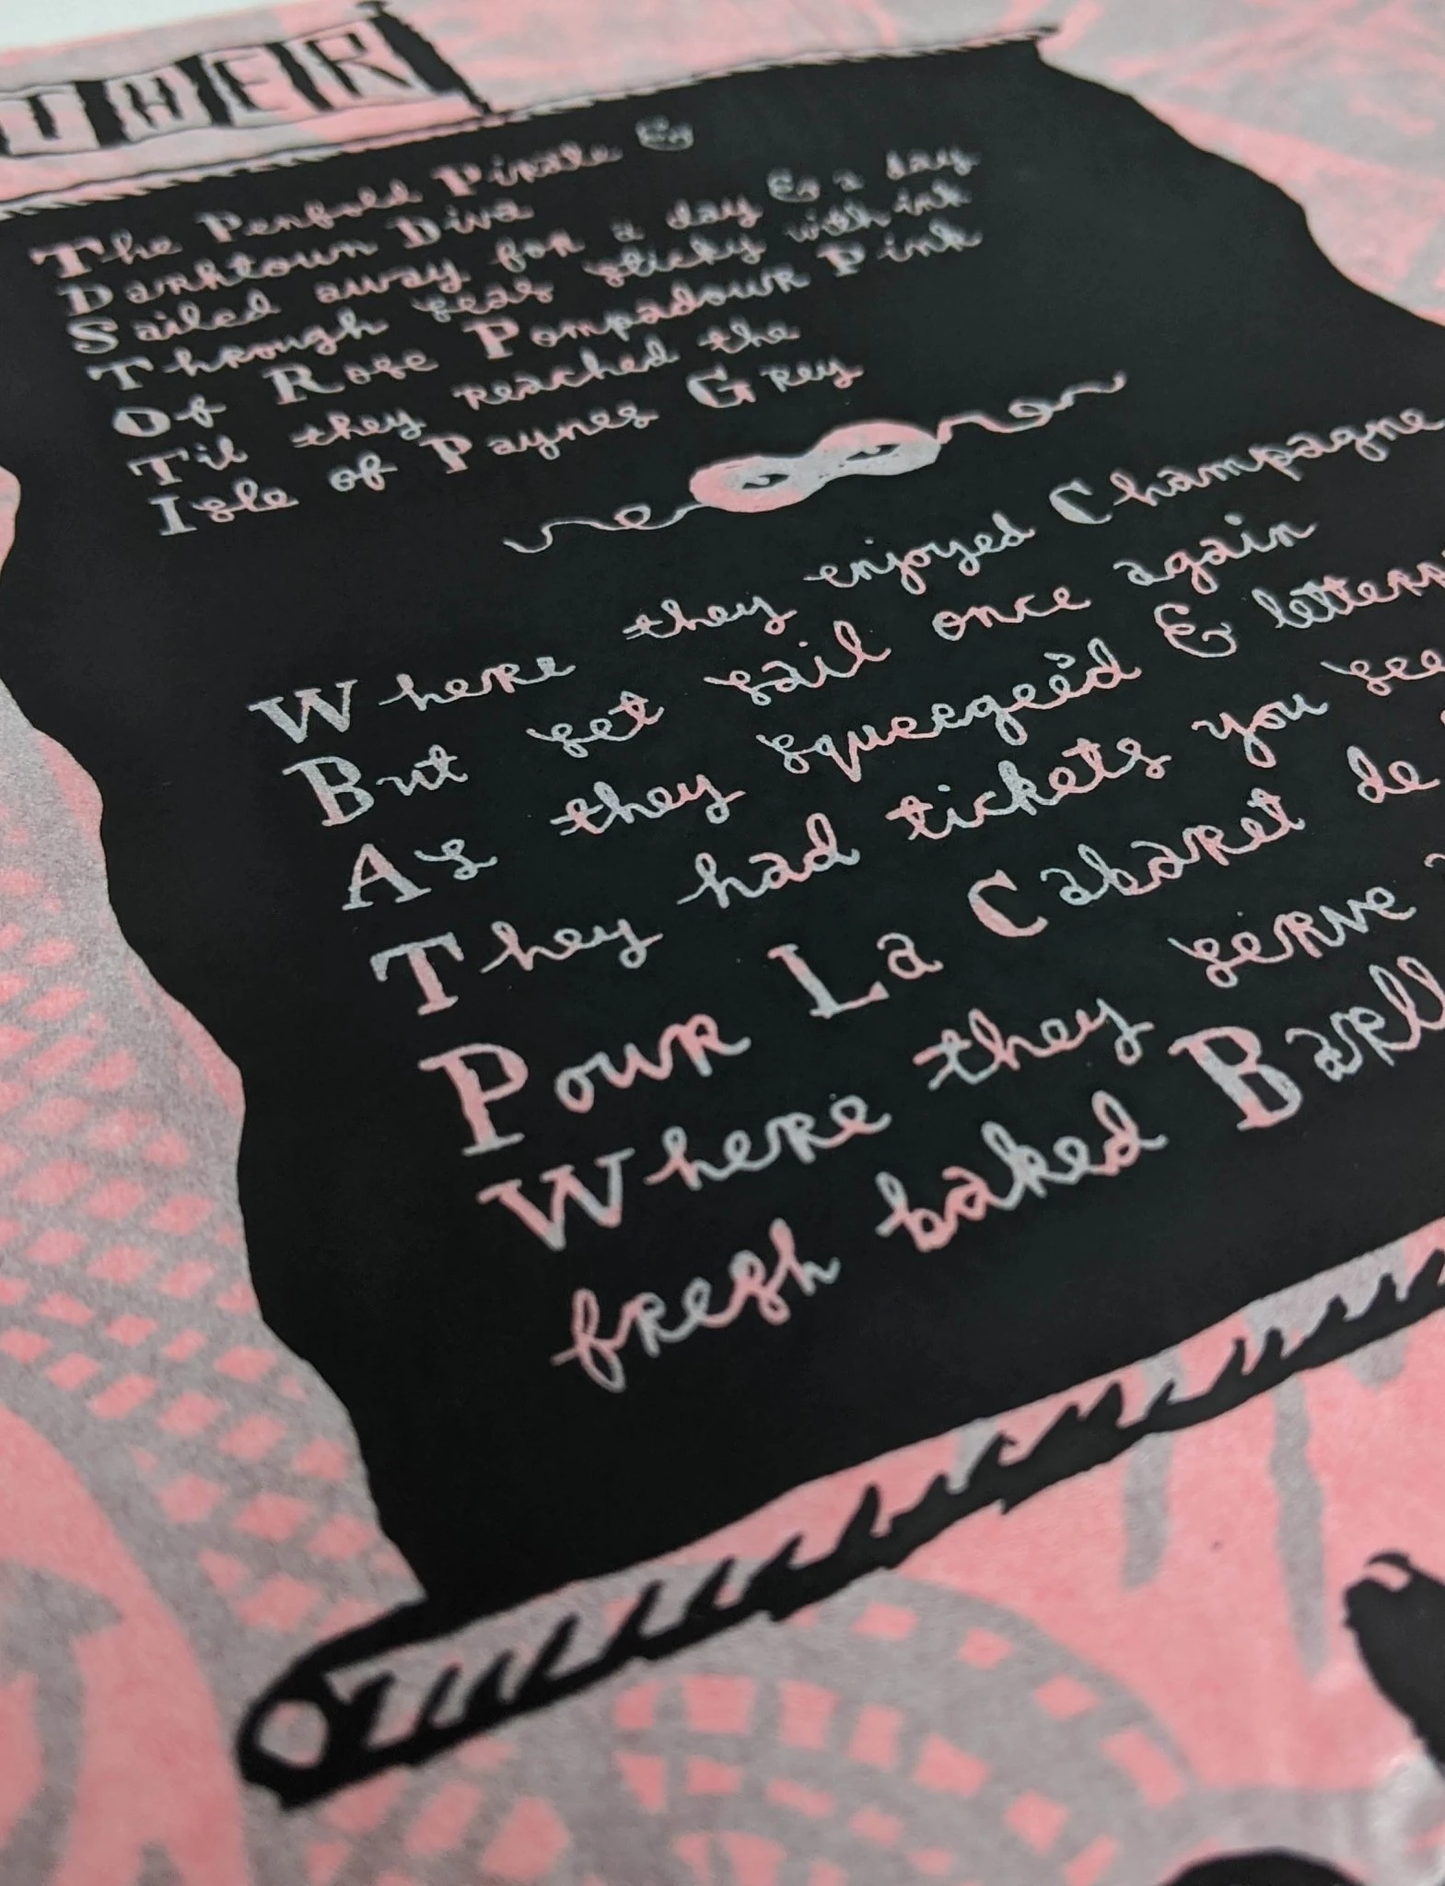 THER
The Penfold Pirate &
Darktown Diva
Sailed away for a day & a day
Through seas sticky with ink
Of Rose Pompadour Pink
Til they reached the
Isle of Paynes Grey
Where they enjoyed Champagne
But set sail once again
As they squeegeèd &
They had tickets you see
Pour La Cabaret de
Where they serve
fresh baked